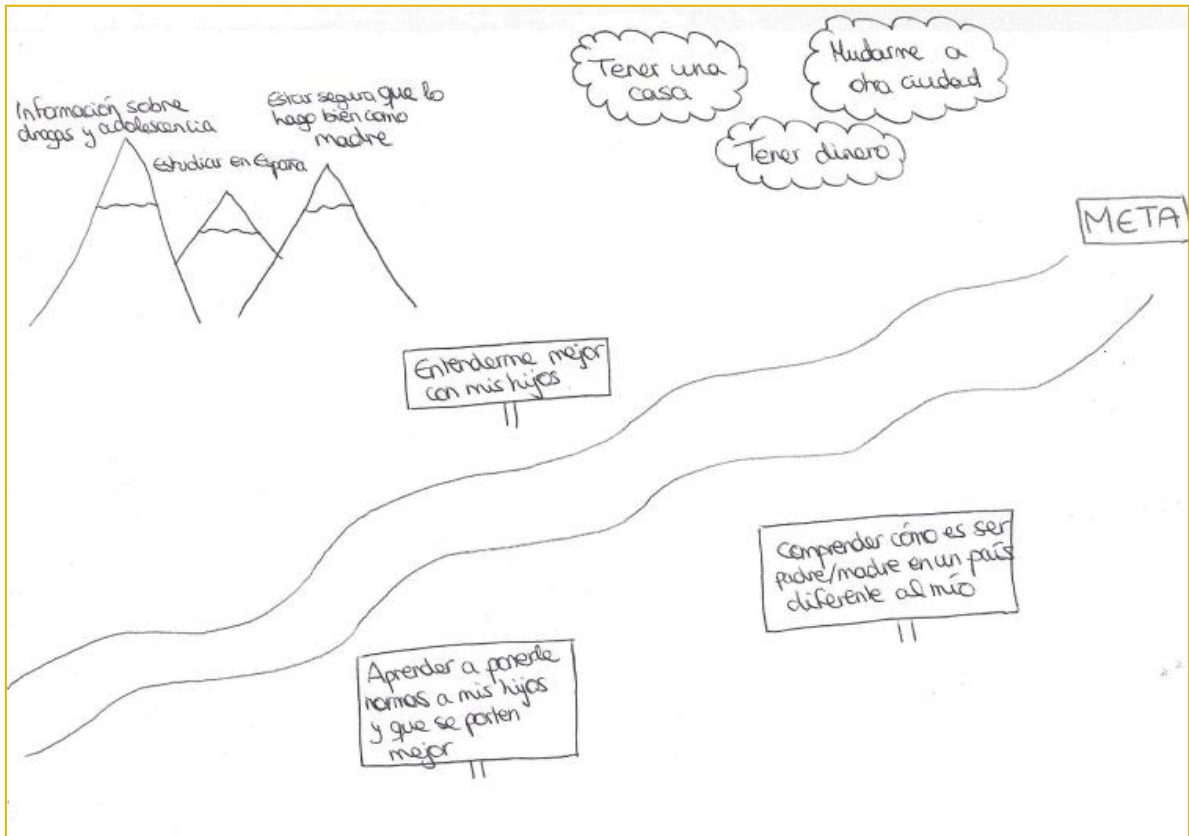 Información sobre
drogas y adolescencia
Estudiar en España
Estar segura que lo
hago bien como
madre
Tener una
casa
Mudarme a
otra ciudad
Tener dinero
META
Entenderme mejor
con mis hijos
Comprender cómo es ser
padre/madre en un país
diferente al mío
Aprender a ponerle
normas a mis hijos
y que se porten
mejor